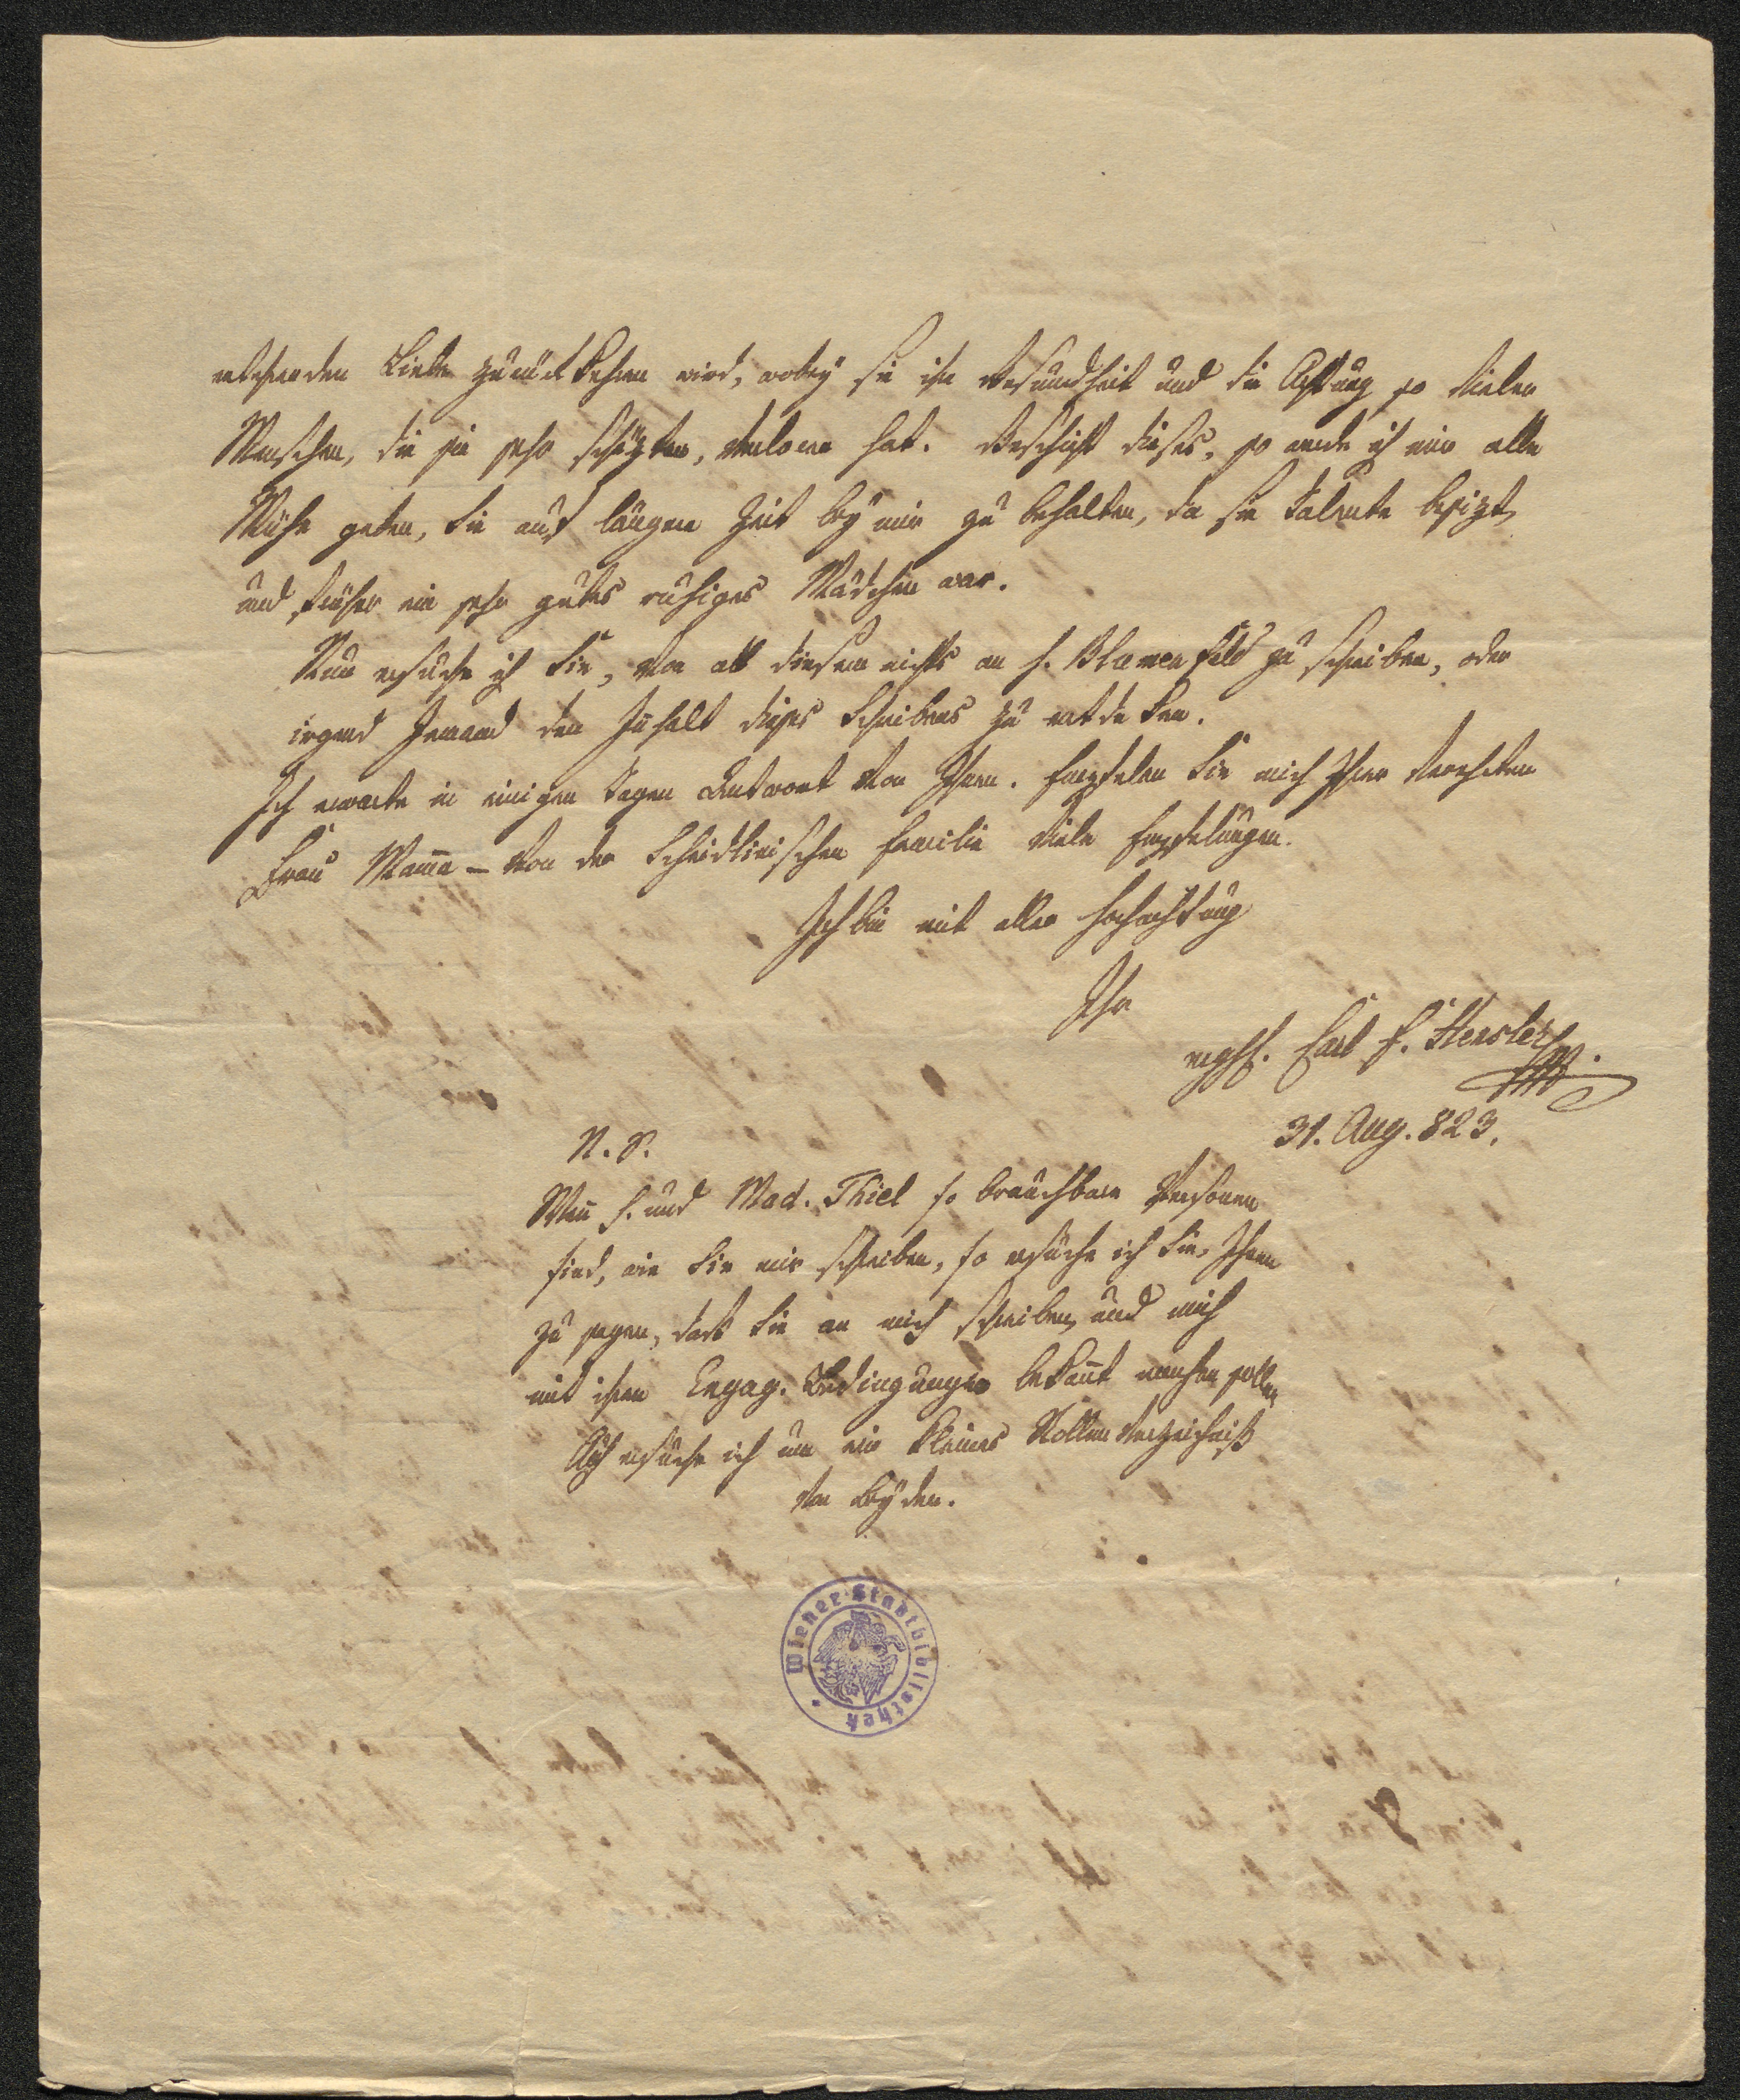 entehrenden Liebe zurückkehren wird, wobey sie ihre Gesundheit und die Achtung so vieler
Menschen, die sie sehr schäzten, verloren hat. Geschieht dieses, so werde ich mir alle
Mühe geben, Sie auf längere Zeit bey mir zu behalten, da sie Talente besizt,
und früher ein sehr gutes ruhiges Mädchen war.
Nun ersuche ich Sie, von all diesem nichts an H. Blumenfeld zu schreiben, oder
irgend Jemand den Inhalt dieses Schreibens zu entdeken.
Ich erwarte in einigen Tagen Antwort von Ihnen. Empfelen Sie mich Ihrer verehrten
Frau Mama – Von der Scheidlinischen Familie viele Empfelungen.
Ich bin mit aller Hochachtung
Ihr
ergbst. Carl F. Hensler
31. Aug. 823.
N. S.
Weñ H. und Mad. Thiel so brauchbare Personen
sind, wie Sie mir schreiben, so ersuche ich Sie, Ihnen
zu sagen, daß Sie an mich schreiben, und mich
mit ihren Engag. Bedingungen bekañt machen sollen
Auch ersuche ich um ein kleines Rollen Verzeichniß
von beyden.
Wiener Stadtbibliothek